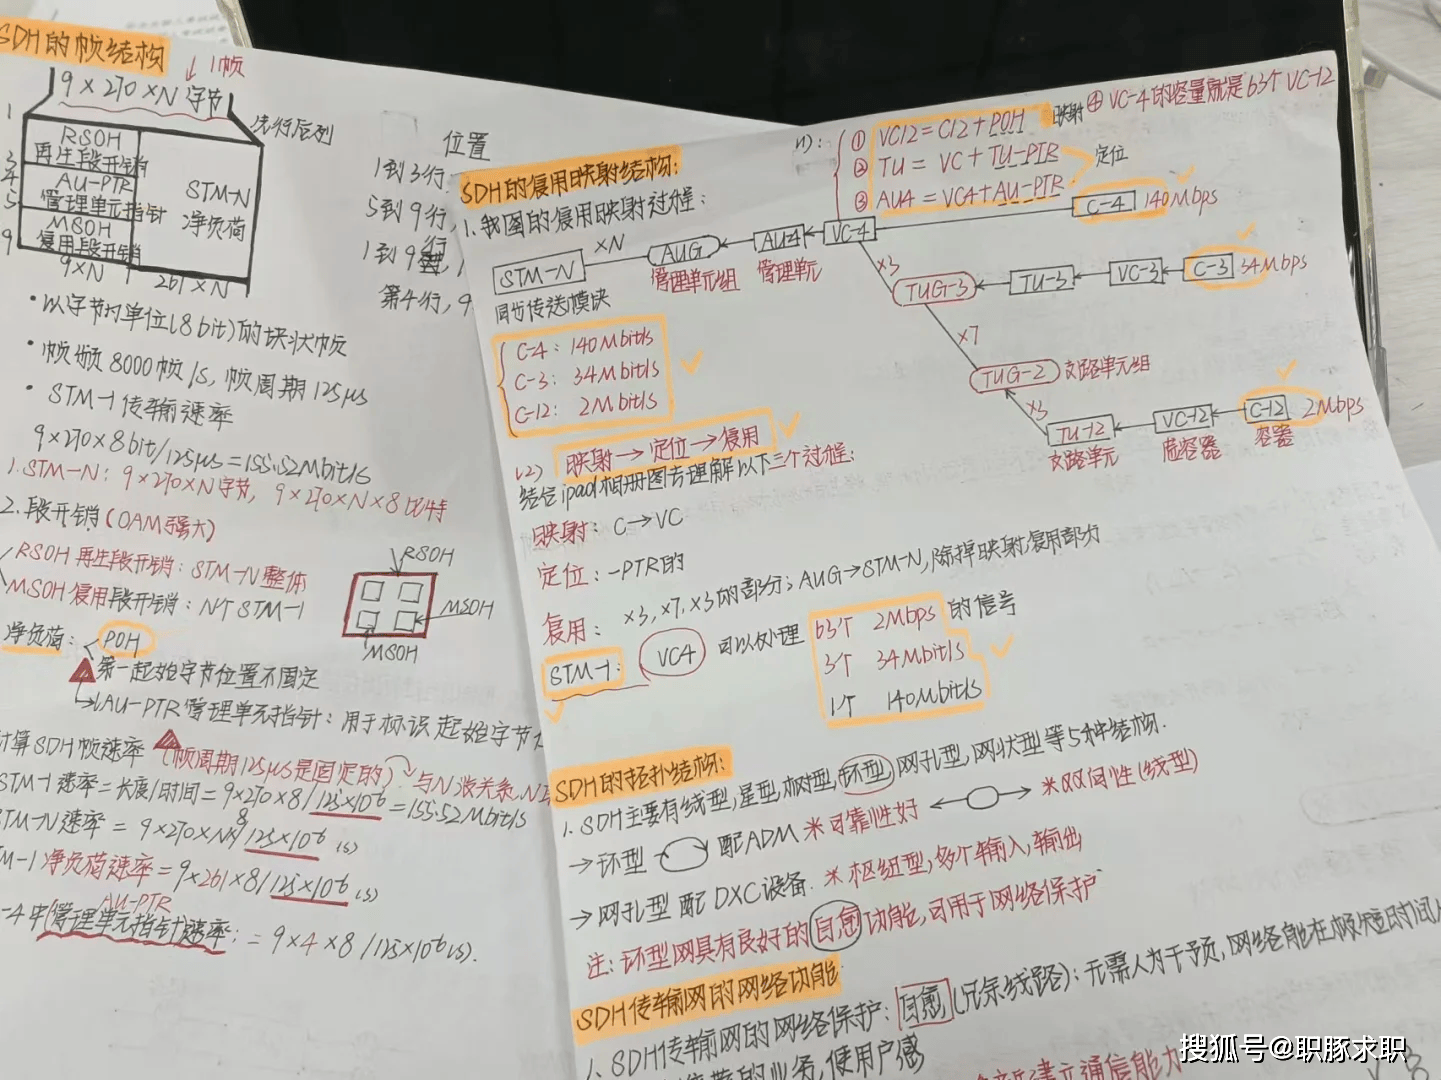 SDH的帧结构
↓1帧
9×270×N字节
先行后列
1
3
4
5
9
RSOH
再生段开销
AU-PTR
管理单元指针
MSOH
复用段开销
STM-N
净负荷
9×N
261×N
位置
1到3行,
5到9行,
1到9行,
第4行, 9
·以字节为单位(8bit)的块状帧
·帧频8000帧/s, 帧周期125μs
·STM-1传输速率
9×270×8bit/125μs=155.52Mbit/s
1.STM-N: 9×270×N字节, 9×270×N×8比特
2.段开销(OAM强大)
RSOH再生段开销: STM-N整体
MSOH复用段开销: N个STM-1
RSOH
MSOH
MSOH
净负荷: POH
第一起始字节位置不固定
→AU-PTR管理单元指针: 用于标识起始字节
计算SDH帧速率 (帧周期125μs是固定的) 与N没关系
STM-1速率=长度/时间=9×270×8/125×10⁻⁶=155.52Mbit/s
STM-N速率=9×270×N×8/125×10⁻⁶(s)
M-1净负荷速率=9×261×8/125×10⁻⁶(s)
AU-PTR
-4中(管理单元指针)速率: =9×4×8/125×10⁻⁶(s).
SDH的复用映射结构:
1.我国的复用映射过程:
①VC12=C12+POH 映射
②TU=VC+TU-PTR
③AU4=VC4+AU-PTR
定位
④VC-4的容量就是63个VC-12
STM-N
×N
AUG
AU-4
VC-4
C-4
140Mbps
同步传送模块
管理单元组
管理单元
×3
TUG-3
TU-3
VC-3
C-3
34Mbps
×7
TUG-2
支路单元组
×3
TU-12
VC-12
C-12
2Mbps
支路单元
虚容器
容器
C-4: 140Mbit/s
C-3: 34Mbit/s
C-12: 2Mbit/s
(2) 映射→定位→复用
结合ipad相册图去理解以下三个过程:
映射: C→VC
定位: -PTR的
复用: ×3,×7,×3的部分; AUG→STM-N, 除掉映射复用部分
STM-1: VC4 可以处理
63个 2Mbps 的信号
3个 34Mbit/s
1个 140Mbit/s
SDH的拓扑结构:
1.SDH主要有线型,星型,树型,环型,网孔型,网状型等5种结构.
→环型 配ADM *可靠性好
*双向性(线型)
→网孔型 配DXC设备. *枢纽型,多个输入,输出
注: 环型网具有良好的自愈功能,可用于网络保护
SDH传输网的网络功能
1.SDH传输网的网络保护: 自愈(冗余线路): 无需人为干预, 网络能在极短时间
的业务, 使用户感
新建立通信能力
搜狐号@职豚求职